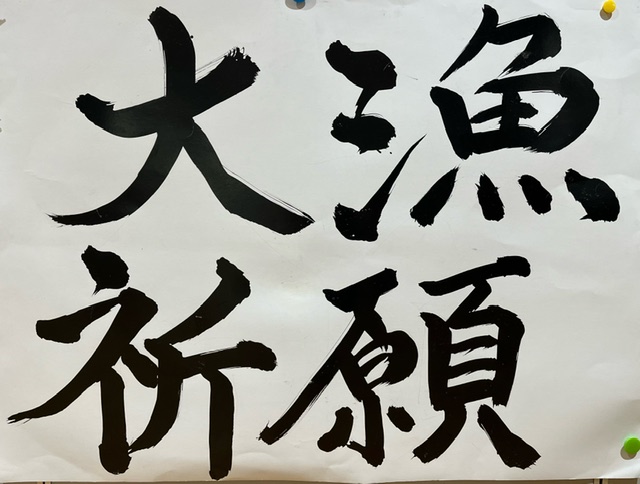 大漁
祈願